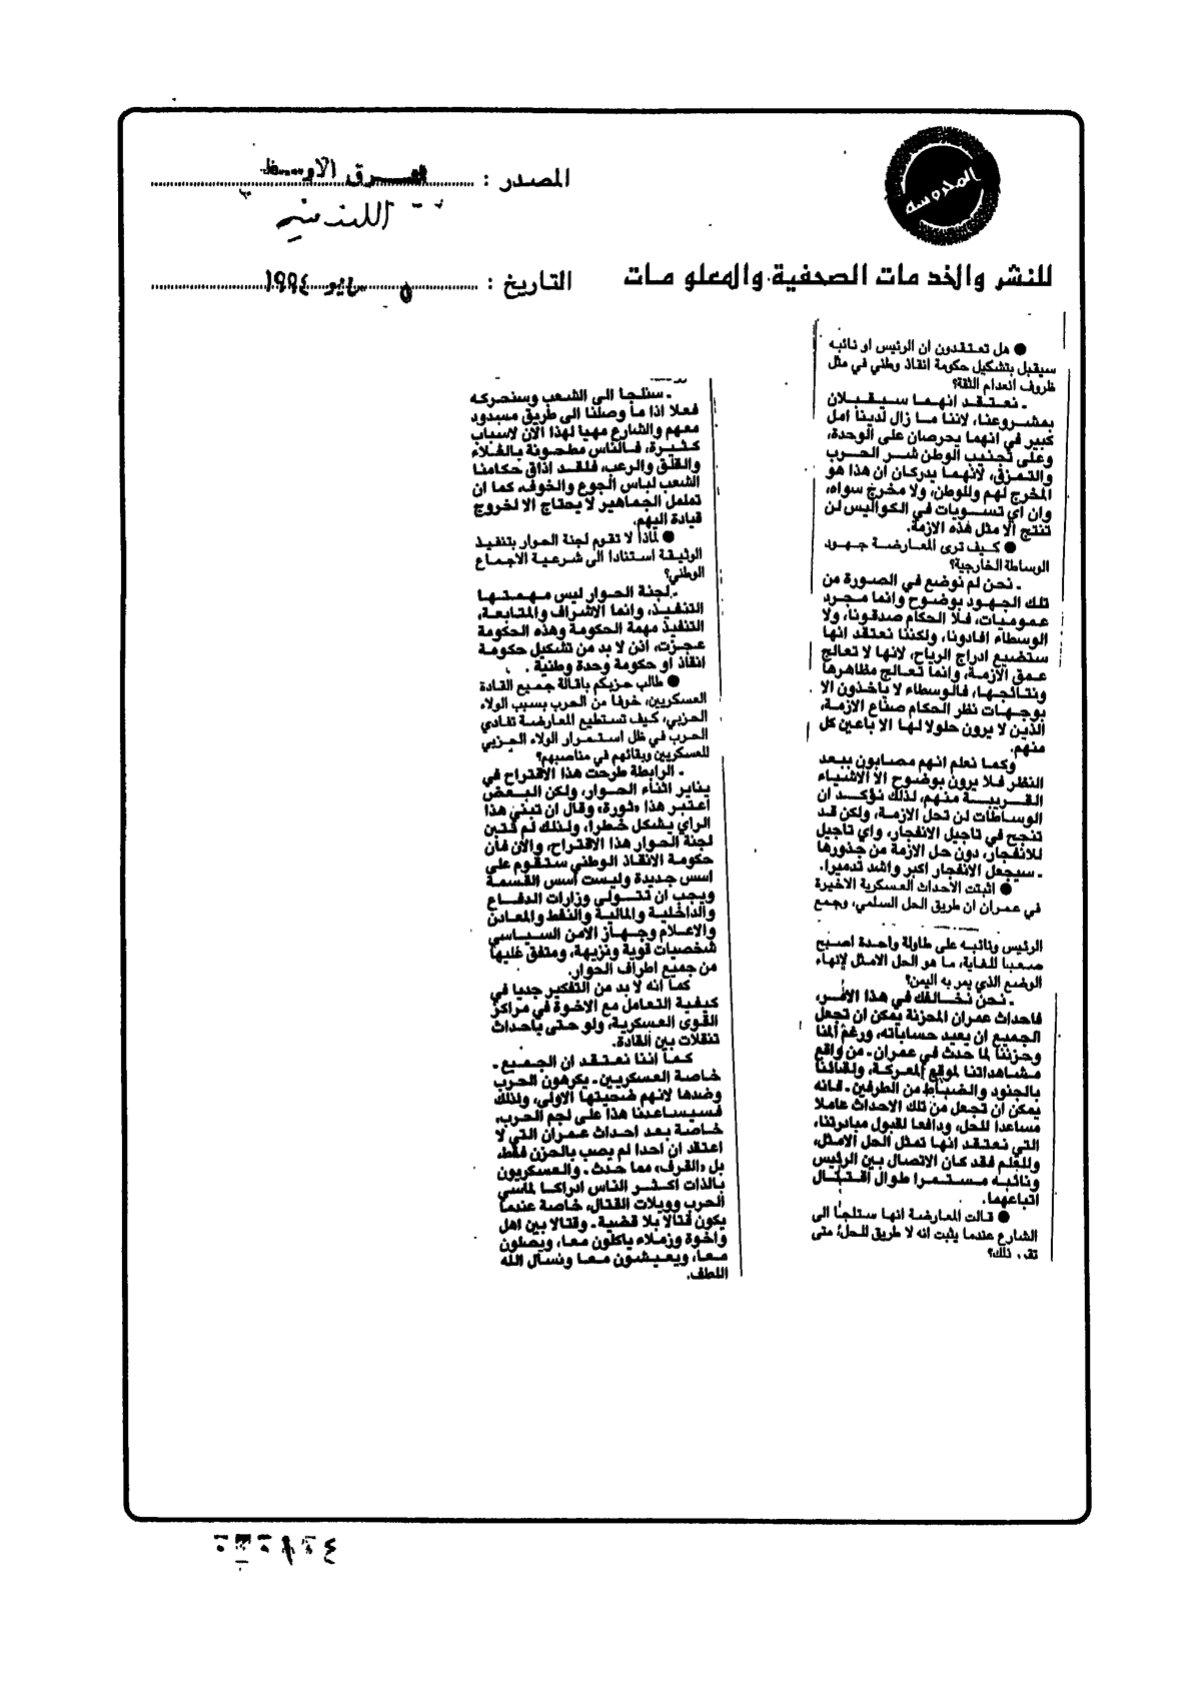 المحروسه
المصدر : الشرق الاوسط
اللندنيه
للنشر والخدمات الصحفية والمعلومات
التاريخ : ٥ مايو ١٩٩٤
● هل تعتقدون ان الرئيس او نائبه
سيقبل بتشكيل حكومة انقاذ وطني في مثل
ظروف انعدام الثقة؟
ـ نعتقد انهما سيقبلان
بمشروعنا، لاننا ما زال لدينا امل
كبير في انهما يحرصان على الوحدة،
وعلى تجنيب الوطن شر الحرب
والتمزق، لانهما يدركان ان هذا هو
المخرج لهم وللوطن، ولا مخرج سواه،
وان اي تسويات في الكواليس لن
تنتج الا مثل هذه الازمة.
● كيف ترى المعارضة جهود
الوساطة الخارجية؟
ـ نحن لم نوضع في الصورة من
تلك الجهود بوضوح وانما مجرد
عموميات، فلا الحكام صدقونا، ولا
الوسطاء افادونا، ولكننا نعتقد انها
ستضيع ادراج الرياح، لانها لا تعالج
عمق الازمة، وانما تعالج مظاهرها
ونتائجها، فالوسطاء لا ياخذون الا
بوجهات نظر الحكام صناع الازمة،
الذين لا يرون حلولا لها الا باعين كل
منهم.
وكما نعلم انهم مصابون ببعد
النظر فلا يرون بوضوح الا الاشياء
القريبة منهم، لذلك نؤكد ان
الوساطات لن تحل الازمة، ولكن قد
تنجح في تاجيل الانفجار، واي تاجيل
للانفجار، دون حل الازمة من جذورها
ـ سيجعل الانفجار اكبر واشد تدميرا.
● اثبتت الاحداث العسكرية الاخيرة
في عمران ان طريق الحل السلمي، وجمع
الرئيس ونائبه على طاولة واحدة اصبح
صعبا للغاية، ما هو الحل الامثل لإنهاء
الوضع الذي يمر به اليمن؟
ـ نحن نخالفك في هذا الامر،
فاحداث عمران المحزنة يمكن ان تجعل
الجميع ان يعيد حساباته، ورغم المنا
وحزننا لما حدث في عمران ـ من واقع
مشاهداتنا لموقع المعركة، ولقائنا
بالجنود والضباط من الطرفين ـ فانه
يمكن ان تجعل من تلك الاحداث عاملا
مساعدا للحل، ودافعا لقبول مبادرتنا،
التي نعتقد انها تمثل الحل الامثل،
وللعلم فقد كان الاتصال بين الرئيس
ونائبه مستمرا طوال اقتتال
اتباعهما.
● قالت المعارضة انها ستلجا الى
الشارع عندما يثبت انه لا طريق للحل، متى
تقرر ذلك؟
ـ سنلجا الى الشعب وسنحركه
فعلا اذا ما وصلنا الى طريق مسدود
معهم والشارع مهيا لهذا الان لاسباب
كثيرة، فالناس مطحونة بالغلاء
والقلق والرعب، فلقد اذاق حكامنا
الشعب لباس الجوع والخوف، كما ان
تململ الجماهير لا يحتاج الا لخروج
قيادة اليهم.
● لماذا لا تقوم لجنة الحوار بتنفيذ
الوثيقة استنادا الى شرعية الاجماع
الوطني؟
ـ لجنة الحوار ليس مهمتها
التنفيذ، وانما الاشراف والمتابعة،
التنفيذ مهمة الحكومة وهذه الحكومة
عجزت، اذن لا بد من تشكيل حكومة
انقاذ او حكومة وحدة وطنية .
● طالب حزبكم باقالة جميع القادة
العسكريين، خوفا من الحرب بسبب الولاء
الحزبي، كيف تستطيع المعارضة تفادي
الحرب في ظل استمرار الولاء الحزبي
للعسكريين وبقائهم في مناصبهم؟
ـ الرابطة طرحت هذا الاقتراح في
يناير اثناء الحوار، ولكن البعض
اعتبر هذا «ثورة» وقال ان تبني هذا
الراي يشكل خطرا، ولذلك لم تتبن
لجنة الحوار هذا الاقتراح، والان فان
حكومة الانقاذ الوطني ستقوم على
اسس جديدة وليست اسس القسمة
ويجب ان تتولى وزارات الدفاع
والداخلية والمالية والنفط والمعادن
والاعلام وجهاز الامن السياسي
شخصيات قوية ونزيهة، ومتفق عليها
من جميع اطراف الحوار.
كما انه لا بد من التفكير جديا في
كيفية التعامل مع الاخوة في مراكز
القوى العسكرية، ولو حتى باحداث
تنقلات بين القادة.
كما اننا نعتقد ان الجميع ـ
خاصة العسكريين ـ يكرهون الحرب
وضدها لانهم ضحيتها الاولى، ولذلك
فسيساعدنا هذا على لجم الحرب،
خاصة بعد احداث عمران التي لا
اعتقد ان احدا لم يصب بالحزن فقط،
بل «القرف» مما حدث ـ والعسكريون
بالذات اكثر الناس ادراكا لماسي
الحرب وويلات القتال، خاصة عندما
يكون قتالا بلا قضية ـ وقتالا بين اهل
واخوة وزملاء ياكلون معا، ويصلون
معا، ويعيشون معا ونسال الله
اللطف.